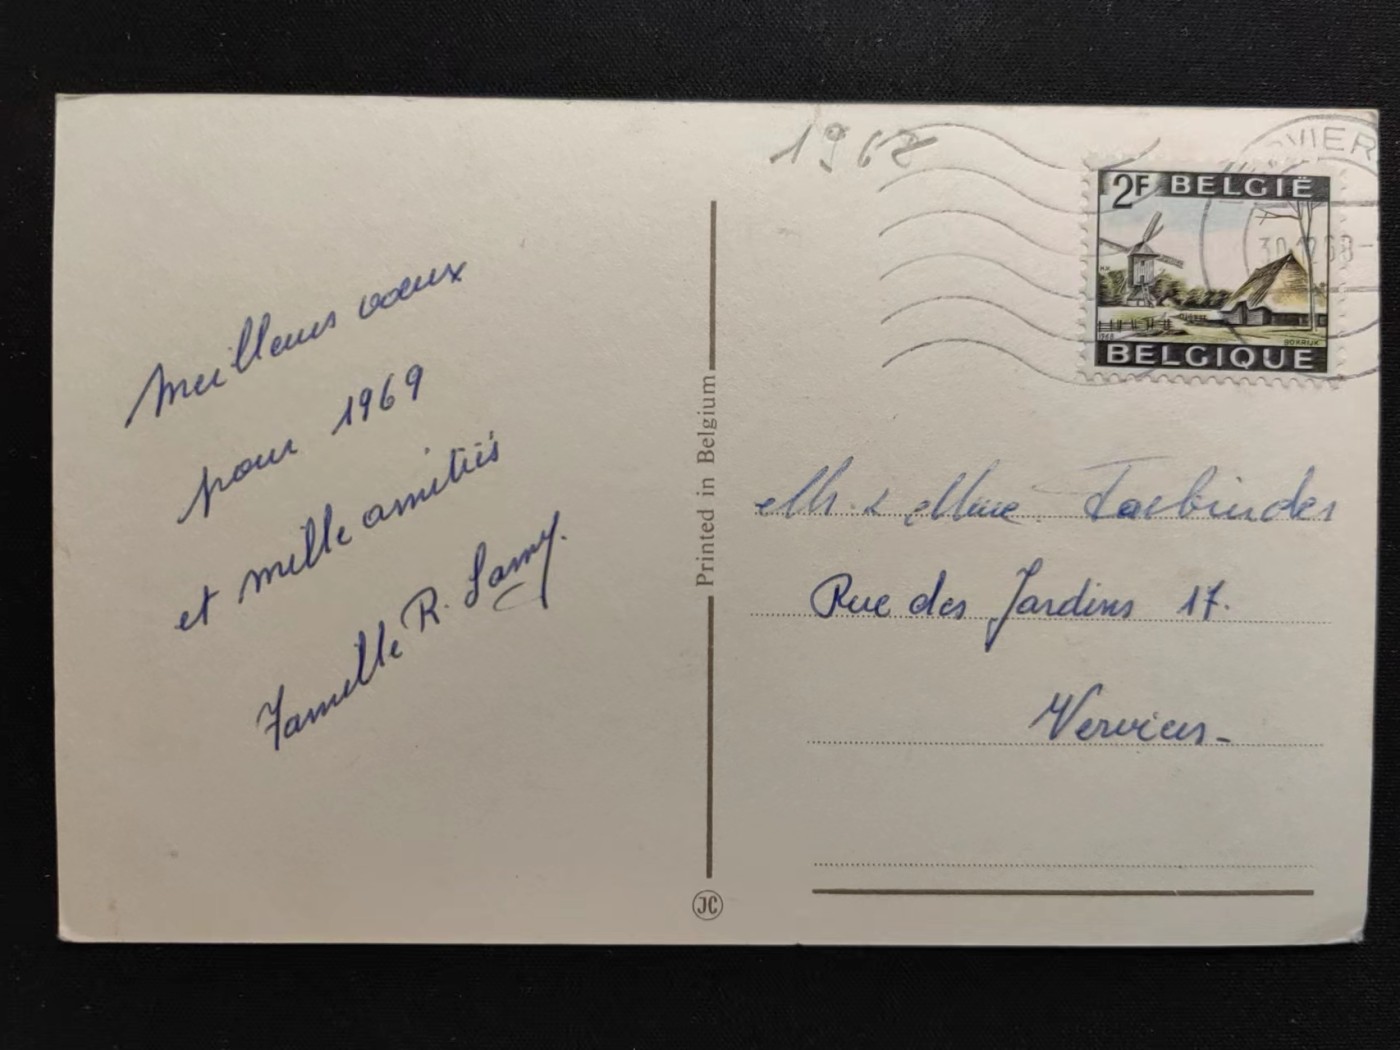 Meilleurs vœux
pour 1969
et mille amitiés
Famille R. Lamy.
Printed in Belgium
JC
1968
VIER
30 12 68
2F BELGIË
BOKRIJK
BELGIQUE
Mr. & Mme
Rue des Jardins 17.
Verviers-